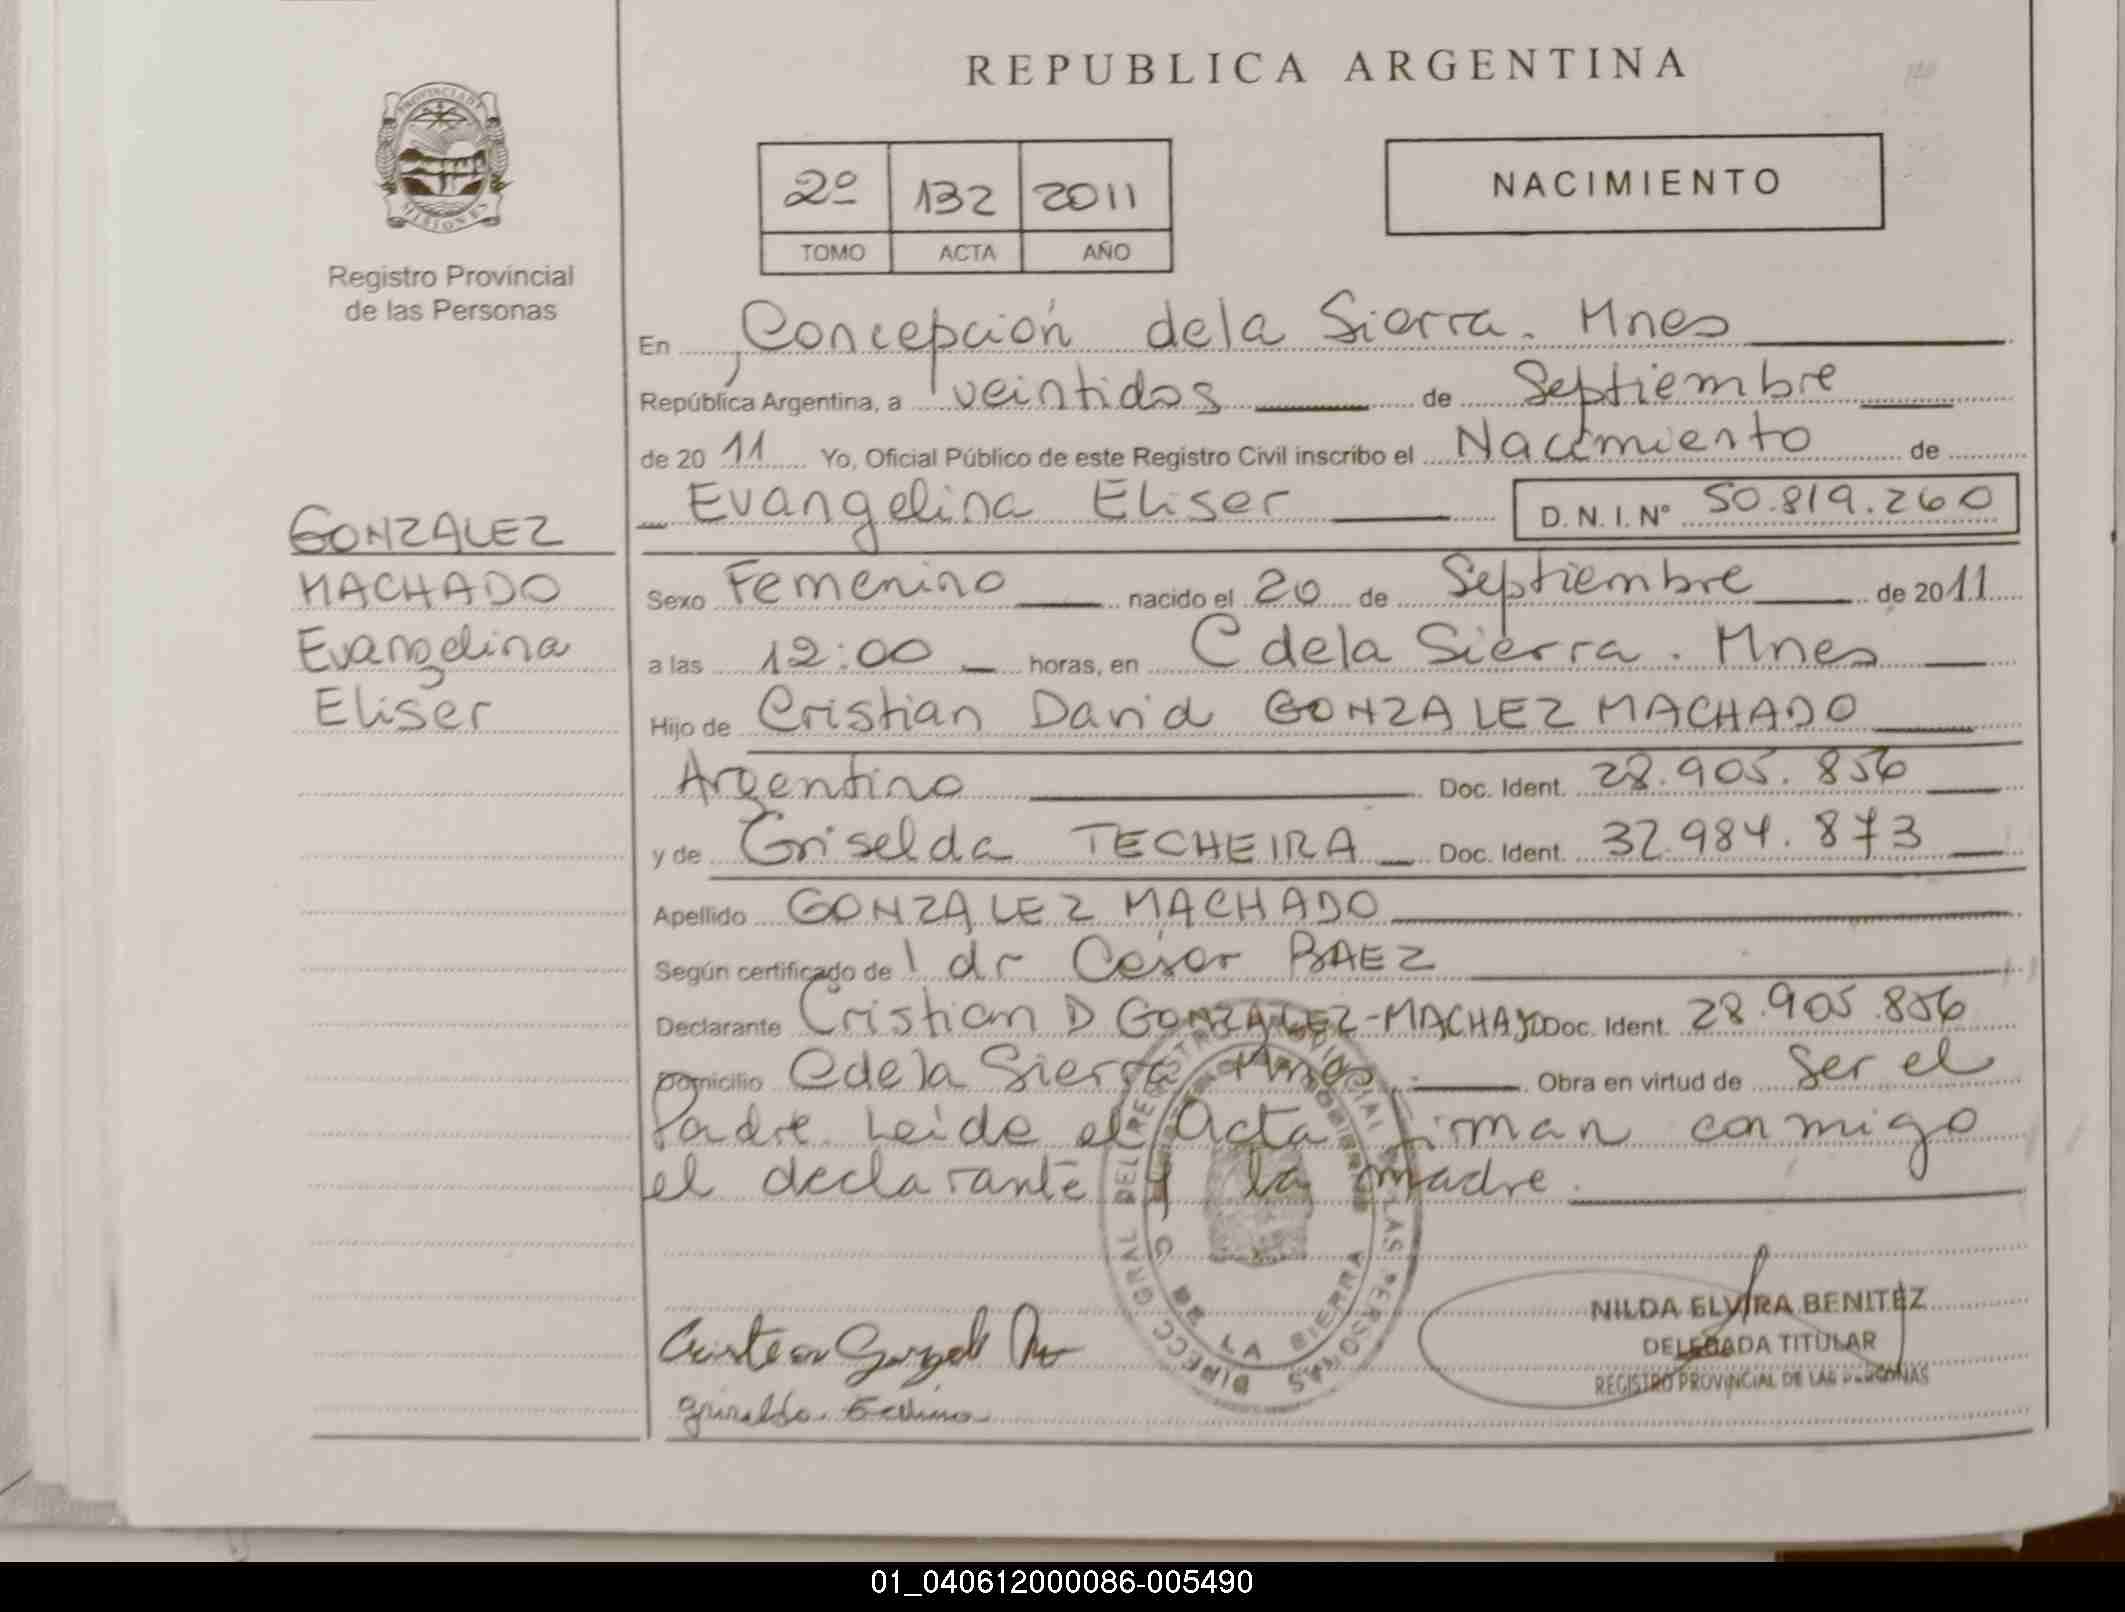 REPUBLICA ARGENTINA
PROVINCIA DE
MISIONES
Registro Provincial
de las Personas
2º 132 2011
TOMO ACTA AÑO
NACIMIENTO
En Concepción dela Sierra. Mnes
República Argentina, a veintidos de Septiembre
de 2011 Yo, Oficial Público de este Registro Civil inscribo el Nacimiento de
Evangelina Eliser D.N.I. Nº 50.819.260
GONZALEZ
MACHADO
Evangelina
Eliser
Sexo Femenino nacido el 20 de Septiembre de 2011
a las 12:00 horas, en C dela Sierra. Mnes
Hijo de Cristian David GONZALEZ MACHADO
Argentino Doc. Ident. 28.905.856
y de Griselda TECHEIRA Doc. Ident. 32.984.873
Apellido GONZALEZ MACHADO
Según certificado de l dr Cesar BAEZ
Declarante Cristian D GONZALEZ-MACHADO Doc. Ident. 28.905.856
Domicilio C dela Sierra Mnes. Obra en virtud de Ser el
Padre Leido el Acta firman conmigo
el declarante y la madre.
DIRECC. GRAL. DEL REGISTRO PROVINCIAL DE LAS PERSONAS
C. DE LA SIERRA
NILDA ELVIRA BENITEZ
DELEGADA TITULAR
REGISTRO PROVINCIAL DE LAS PERSONAS
01_040612000086-005490